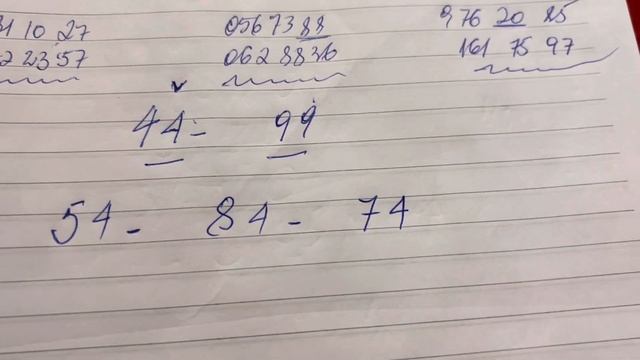 10 27 0567388 976 20 85
22357 0628836 161 75 97
44 - 99
54 - 84 - 74